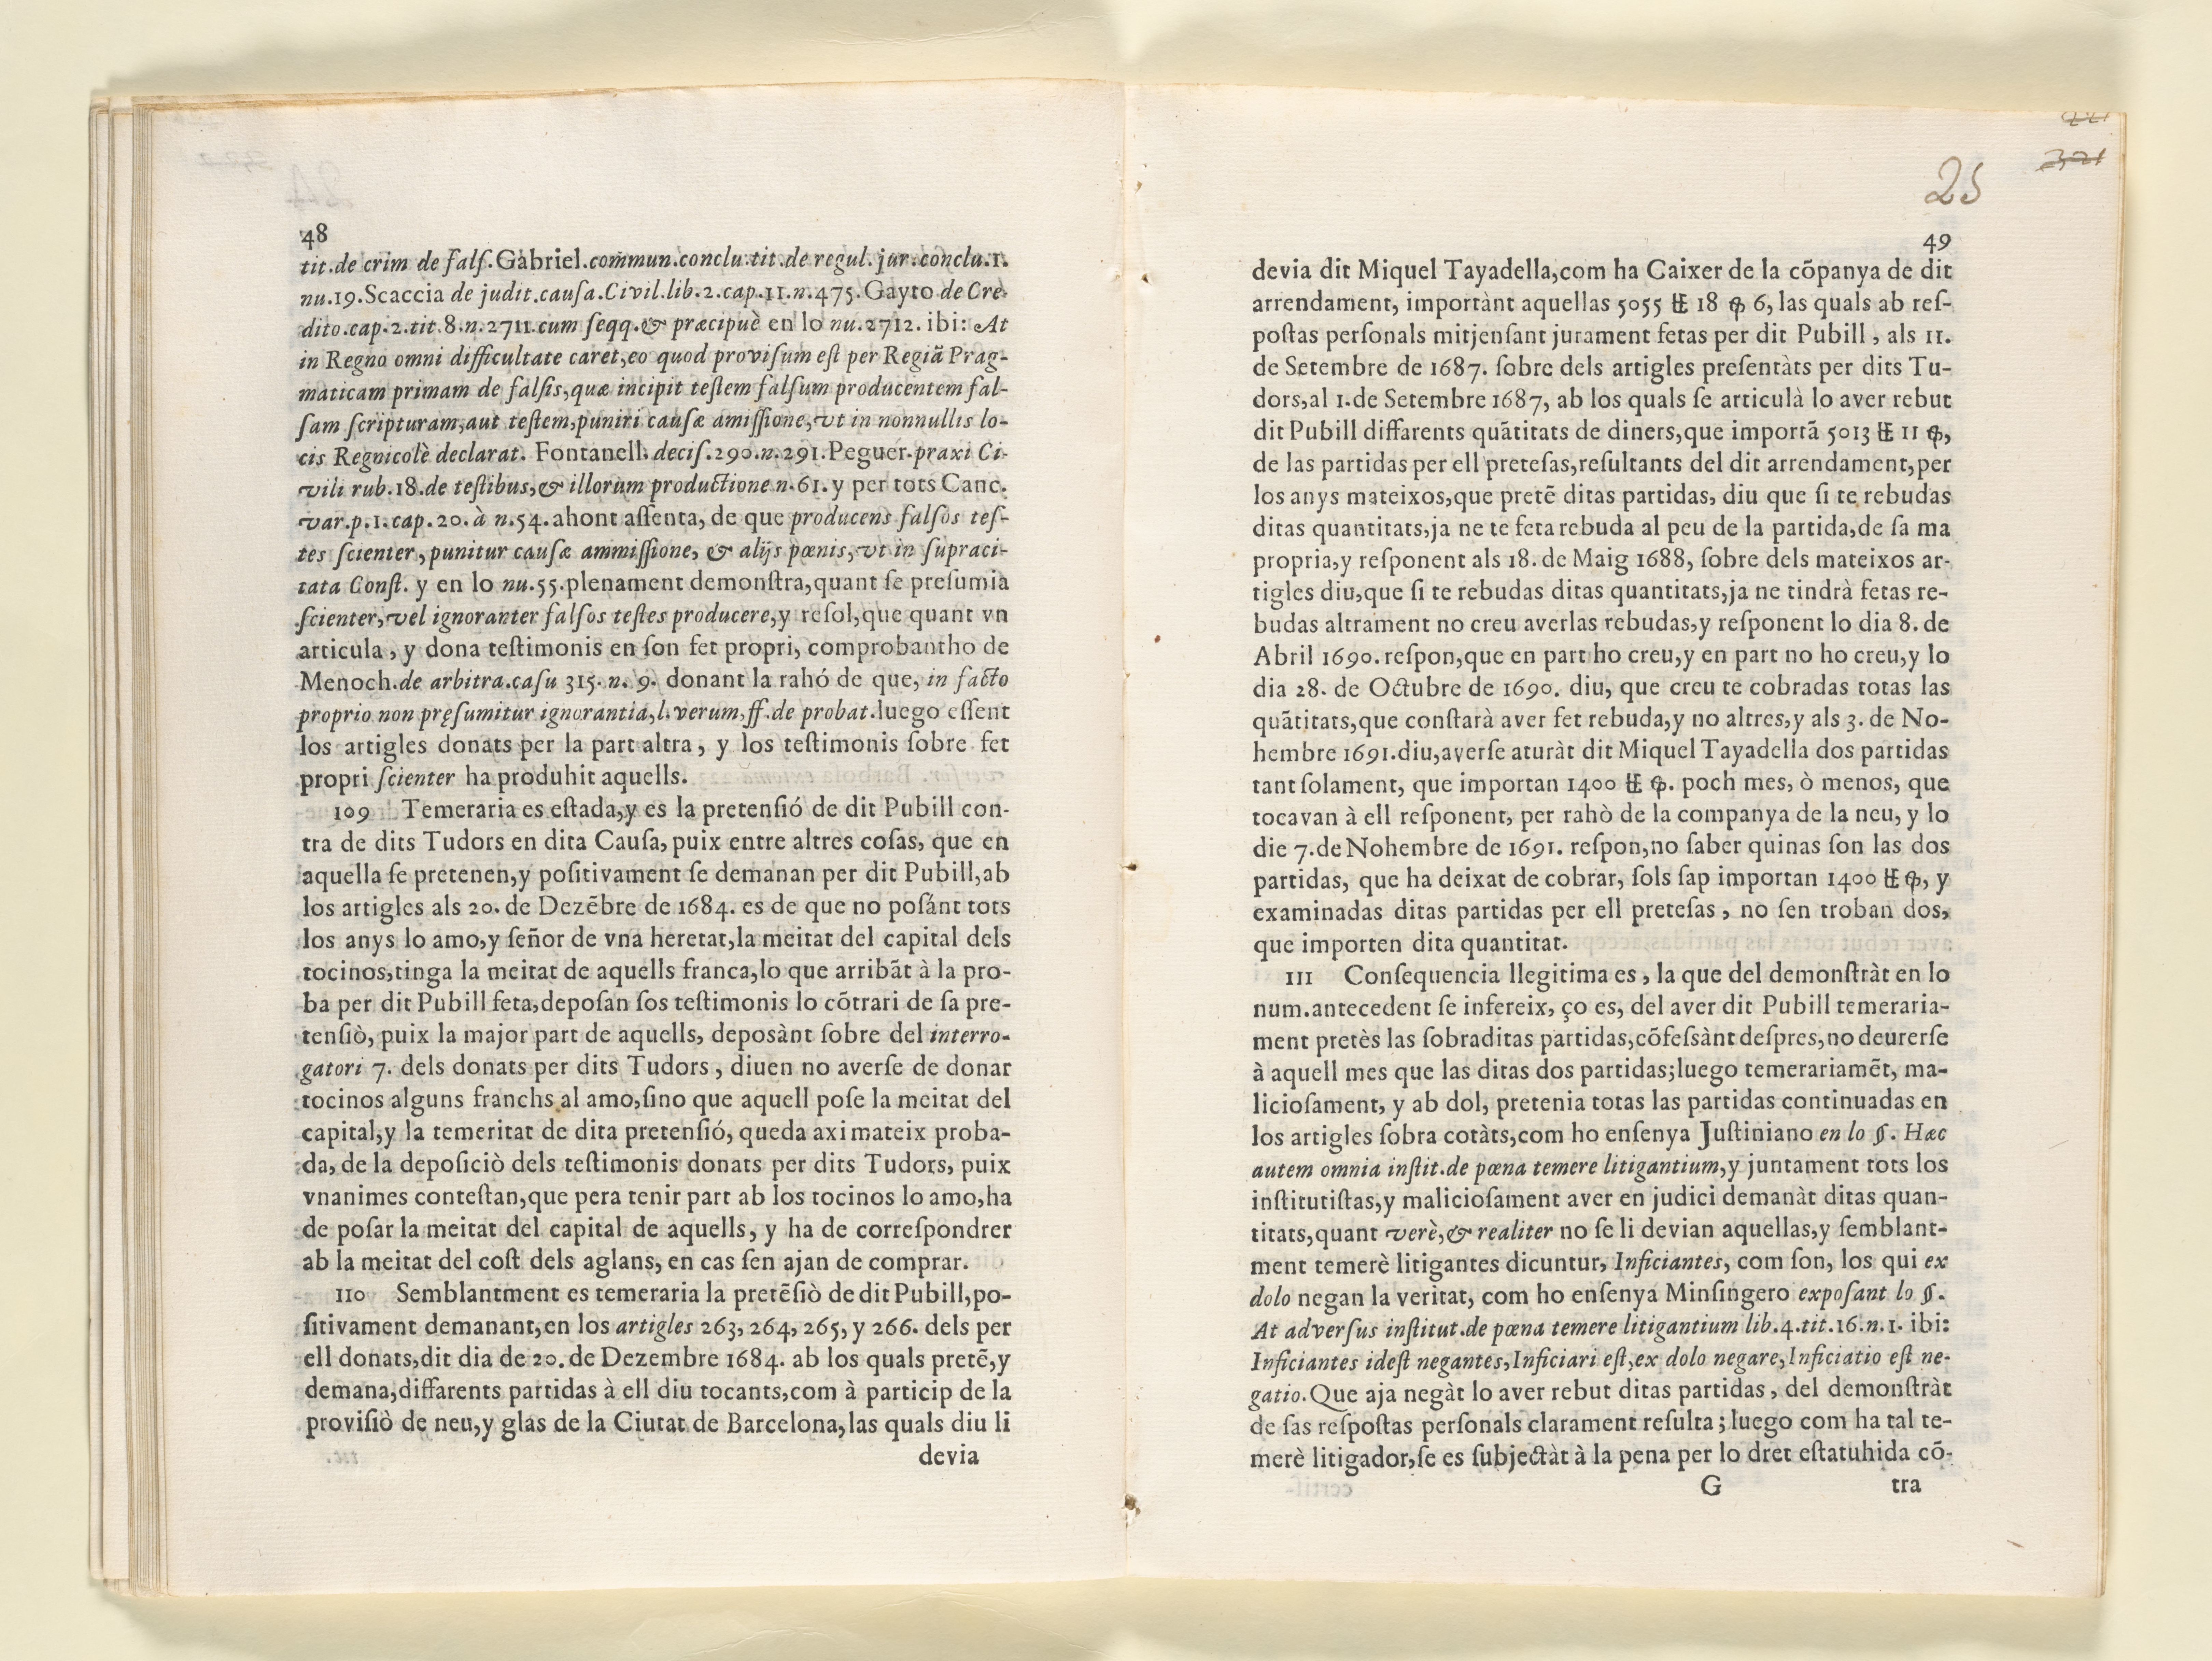 48
tit.de crim de falſ.Gabriel.commun.conclu.tit.de regul.jur.conclu.1.
nu.19.Scaccia de judit.cauſa.Civil.lib.2.cap.11.n.475.Gayto de Cre-
dito.cap.2.tit.8.n.2711.cum ſeqq.& præcipuè en lo nu.2712. ibi: At
in Regno omni difficultate caret,eo quod proviſum eſt per Regiã Prag-
maticam primam de falſis,quæ incipit teſtem falſum producentem fal-
ſam ſcripturam,aut teſtem,puniri cauſæ amiſſione,vt in nonnullis lo-
cis Regnicolè declarat. Fontanell.deciſ.290.n.291.Peguer.praxi Ci-
vili rub.18.de teſtibus,& illorum productione n.61.y per tots Canc.
var.p.1.cap.20.à n.54.ahont aſſenta, de que producens falſos teſ-
tes ſcienter,punitur cauſæ ammiſſione, & alijs pœnis,vt in ſupraci-
tata Conſt. y en lo nu.55.plenament demonſtra,quant ſe preſumia
ſcienter,vel ignoranter falſos teſtes producere,y reſol,que quant vn
articula, y dona teſtimonis en ſon fet propri, comprobantho de
Menoch.de arbitra.caſu 315. n. 9. donant la rahó de que, in facto
proprio non pręſumitur ignorantia,l.verum,ff.de probat.luego eſſent
los artigles donats per la part altra, y los teſtimonis ſobre fet
propri ſcienter ha produhit aquells.
109 Temeraria es eſtada,y es la pretenſió de dit Pubill con-
tra de dits Tudors en dita Cauſa, puix entre altres coſas, que en
aquella ſe pretenen,y poſitivament ſe demanan per dit Pubill,ab
los artigles als 20. de Dezẽbre de 1684. es de que no poſánt tots
los anys lo amo,y ſeñor de vna heretat,la meitat del capital dels
tocinos,tinga la meitat de aquells franca,lo que arribãt à la pro-
ba per dit Pubill feta,depoſan ſos teſtimonis lo cõtrari de ſa pre-
tenſiò, puix la major part de aquells, depoſànt ſobre del interro-
gatori 7. dels donats per dits Tudors, diuen no averſe de donar
tocinos alguns franchs al amo,ſino que aquell poſe la meitat del
capital,y la temeritat de dita pretenſió, queda axi mateix proba-
da, de la depoſiciò dels teſtimonis donats per dits Tudors, puix
vnanimes conteſtan,que pera tenir part ab los tocinos lo amo,ha
de poſar la meitat del capital de aquells, y ha de correſpondrer
ab la meitat del coſt dels aglans, en cas ſen ajan de comprar.
110 Semblantment es temeraria la pretẽſiò de dit Pubill,po-
ſitivament demanant,en los artigles 263, 264, 265, y 266. dels per
ell donats,dit dia de 20. de Dezembre 1684. ab los quals pretẽ,y
demana,differents partidas à ell diu tocants,com à particip de la
proviſiò de neu,y glas de la Ciutat de Barcelona,las quals diu li
devia
25
49
devia dit Miquel Tayadella,com ha Caixer de la cõpanya de dit
arrendament, importànt aquellas 5055 ℔ 18 ꝗ 6, las quals ab reſ-
poſtas perſonals mitjenſant jurament fetas per dit Pubill, als 11.
de Setembre de 1687. ſobre dels artigles preſentàts per dits Tu-
dors,al 1.de Setembre 1687, ab los quals ſe articulà lo aver rebut
dit Pubill differents quãtitats de diners,que importã 5013 ℔ 11 ꝗ,
de las partidas per ell preteſas,reſultants del dit arrendament,per
los anys mateixos,que pretẽ ditas partidas, diu que ſi te rebudas
ditas quantitats,ja ne te feta rebuda al peu de la partida,de ſa ma
propria,y reſponent als 18. de Maig 1688, ſobre dels mateixos ar-
tigles diu,que ſi te rebudas ditas quantitats,ja ne tindrà fetas re-
budas altrament no creu averlas rebudas,y reſponent lo dia 8. de
Abril 1690. reſpon,que en part ho creu,y en part no ho creu,y lo
dia 28. de Octubre de 1690. diu, que creu te cobradas totas las
quãtitats,que conſtarà aver fet rebuda,y no altres,y als 3. de No-
hembre 1691.diu,averſe aturàt dit Miquel Tayadella dos partidas
tant ſolament, que importan 1400 ℔ ꝗ. poch mes, ò menos, que
tocavan à ell reſponent, per rahò de la companya de la neu, y lo
die 7.de Nohembre de 1691. reſpon,no ſaber quinas ſon las dos
partidas, que ha deixat de cobrar, ſols ſap importan 1400 ℔ ꝗ, y
examinadas ditas partidas per ell preteſas, no ſen troban dos,
que importen dita quantitat.
111 Conſequencia llegitima es, la que del demonſtràt en lo
num.antecedent ſe infereix, ço es, del aver dit Pubill temeraria-
ment pretès las ſobraditas partidas,cõfeſsànt deſpres,no deurerſe
à aquell mes que las ditas dos partidas;luego temerariamẽt, ma-
licioſament, y ab dol, pretenia totas las partidas continuadas en
los artigles ſobra cotàts,com ho enſenya Juſtiniano en lo §. Hæc
autem omnia inſtit.de pœna temere litigantium,y juntament tots los
inſtitutiſtas,y malicioſament aver en judici demanàt ditas quan-
titats,quant verè,& realiter no ſe li devian aquellas,y ſemblant-
ment temerè litigantes dicuntur, Inficiantes, com ſon, los qui ex
dolo negan la veritat, com ho enſenya Minſingero expoſant lo §.
At adverſus inſtitut.de pœna temere litigantium lib.4.tit.16.n.1. ibi:
Inficiantes ideſt negantes,Inficiari eſt,ex dolo negare,Inficiatio eſt ne-
gatio.Que aja negàt lo aver rebut ditas partidas, del demonſtràt
de ſas reſpoſtas perſonals clarament reſulta; luego com ha tal te-
merè litigador,ſe es ſubjectàt à la pena per lo dret eſtatuhida cõ-
G tra